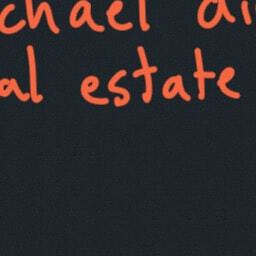 chael di
al estate